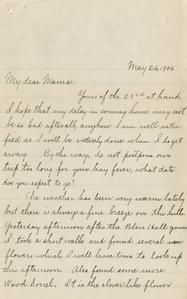 May 26, 1904
My dear Mama:
Yours of the 23rd at hand.
I hope that my delay in coming home may not
be so bad after all, anyhow I am well satis-
fied as I will be entirely done when I do get
away. By the way, do not postpone our
trip too long for your hay fever, what date
do you expect to go?
The weather has been very warm lately
but there is always a fine breeze on the hills.
Yesterday afternoon after the Blair Hall game
I took a short walk and found several new
flowers which I will have time to look up
this afternoon. Also found some more
Wood Sorrel. It is the clover like flower